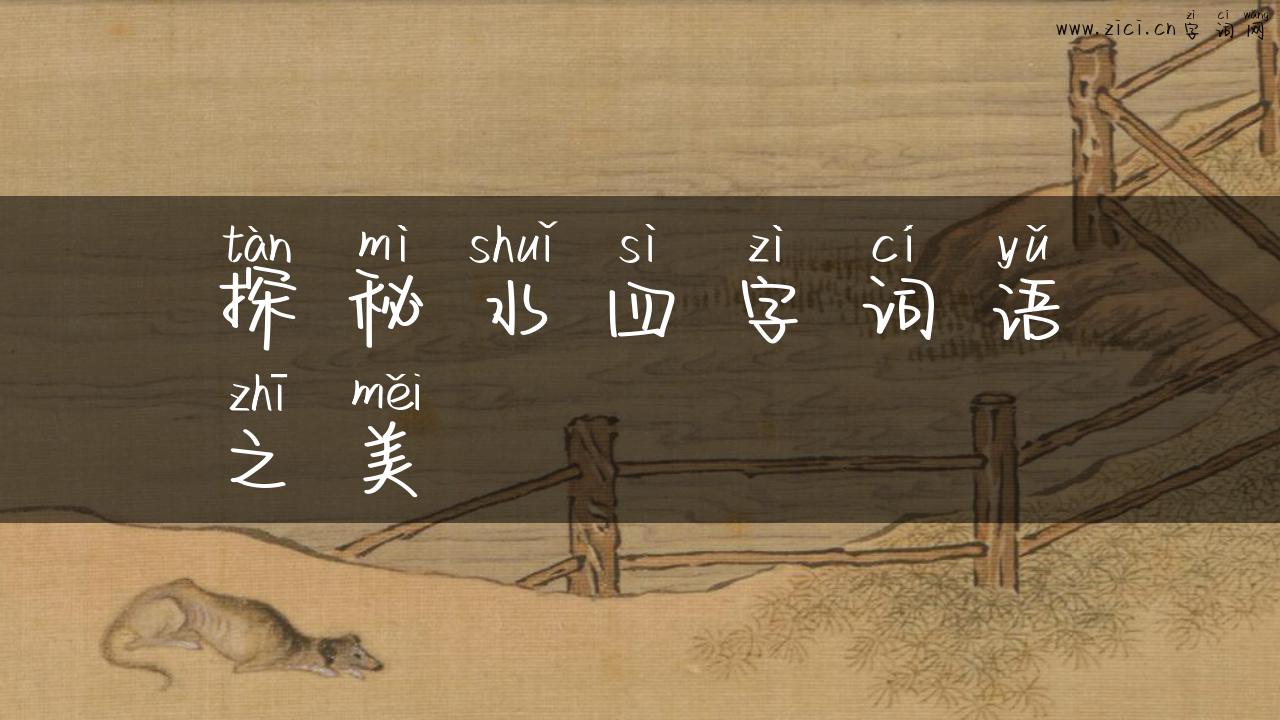 zì cí wǎng
www.zici.cn 字词网
tàn mì shuǐ sì zì cí yǔ
探秘水四字词语
zhī měi
之美